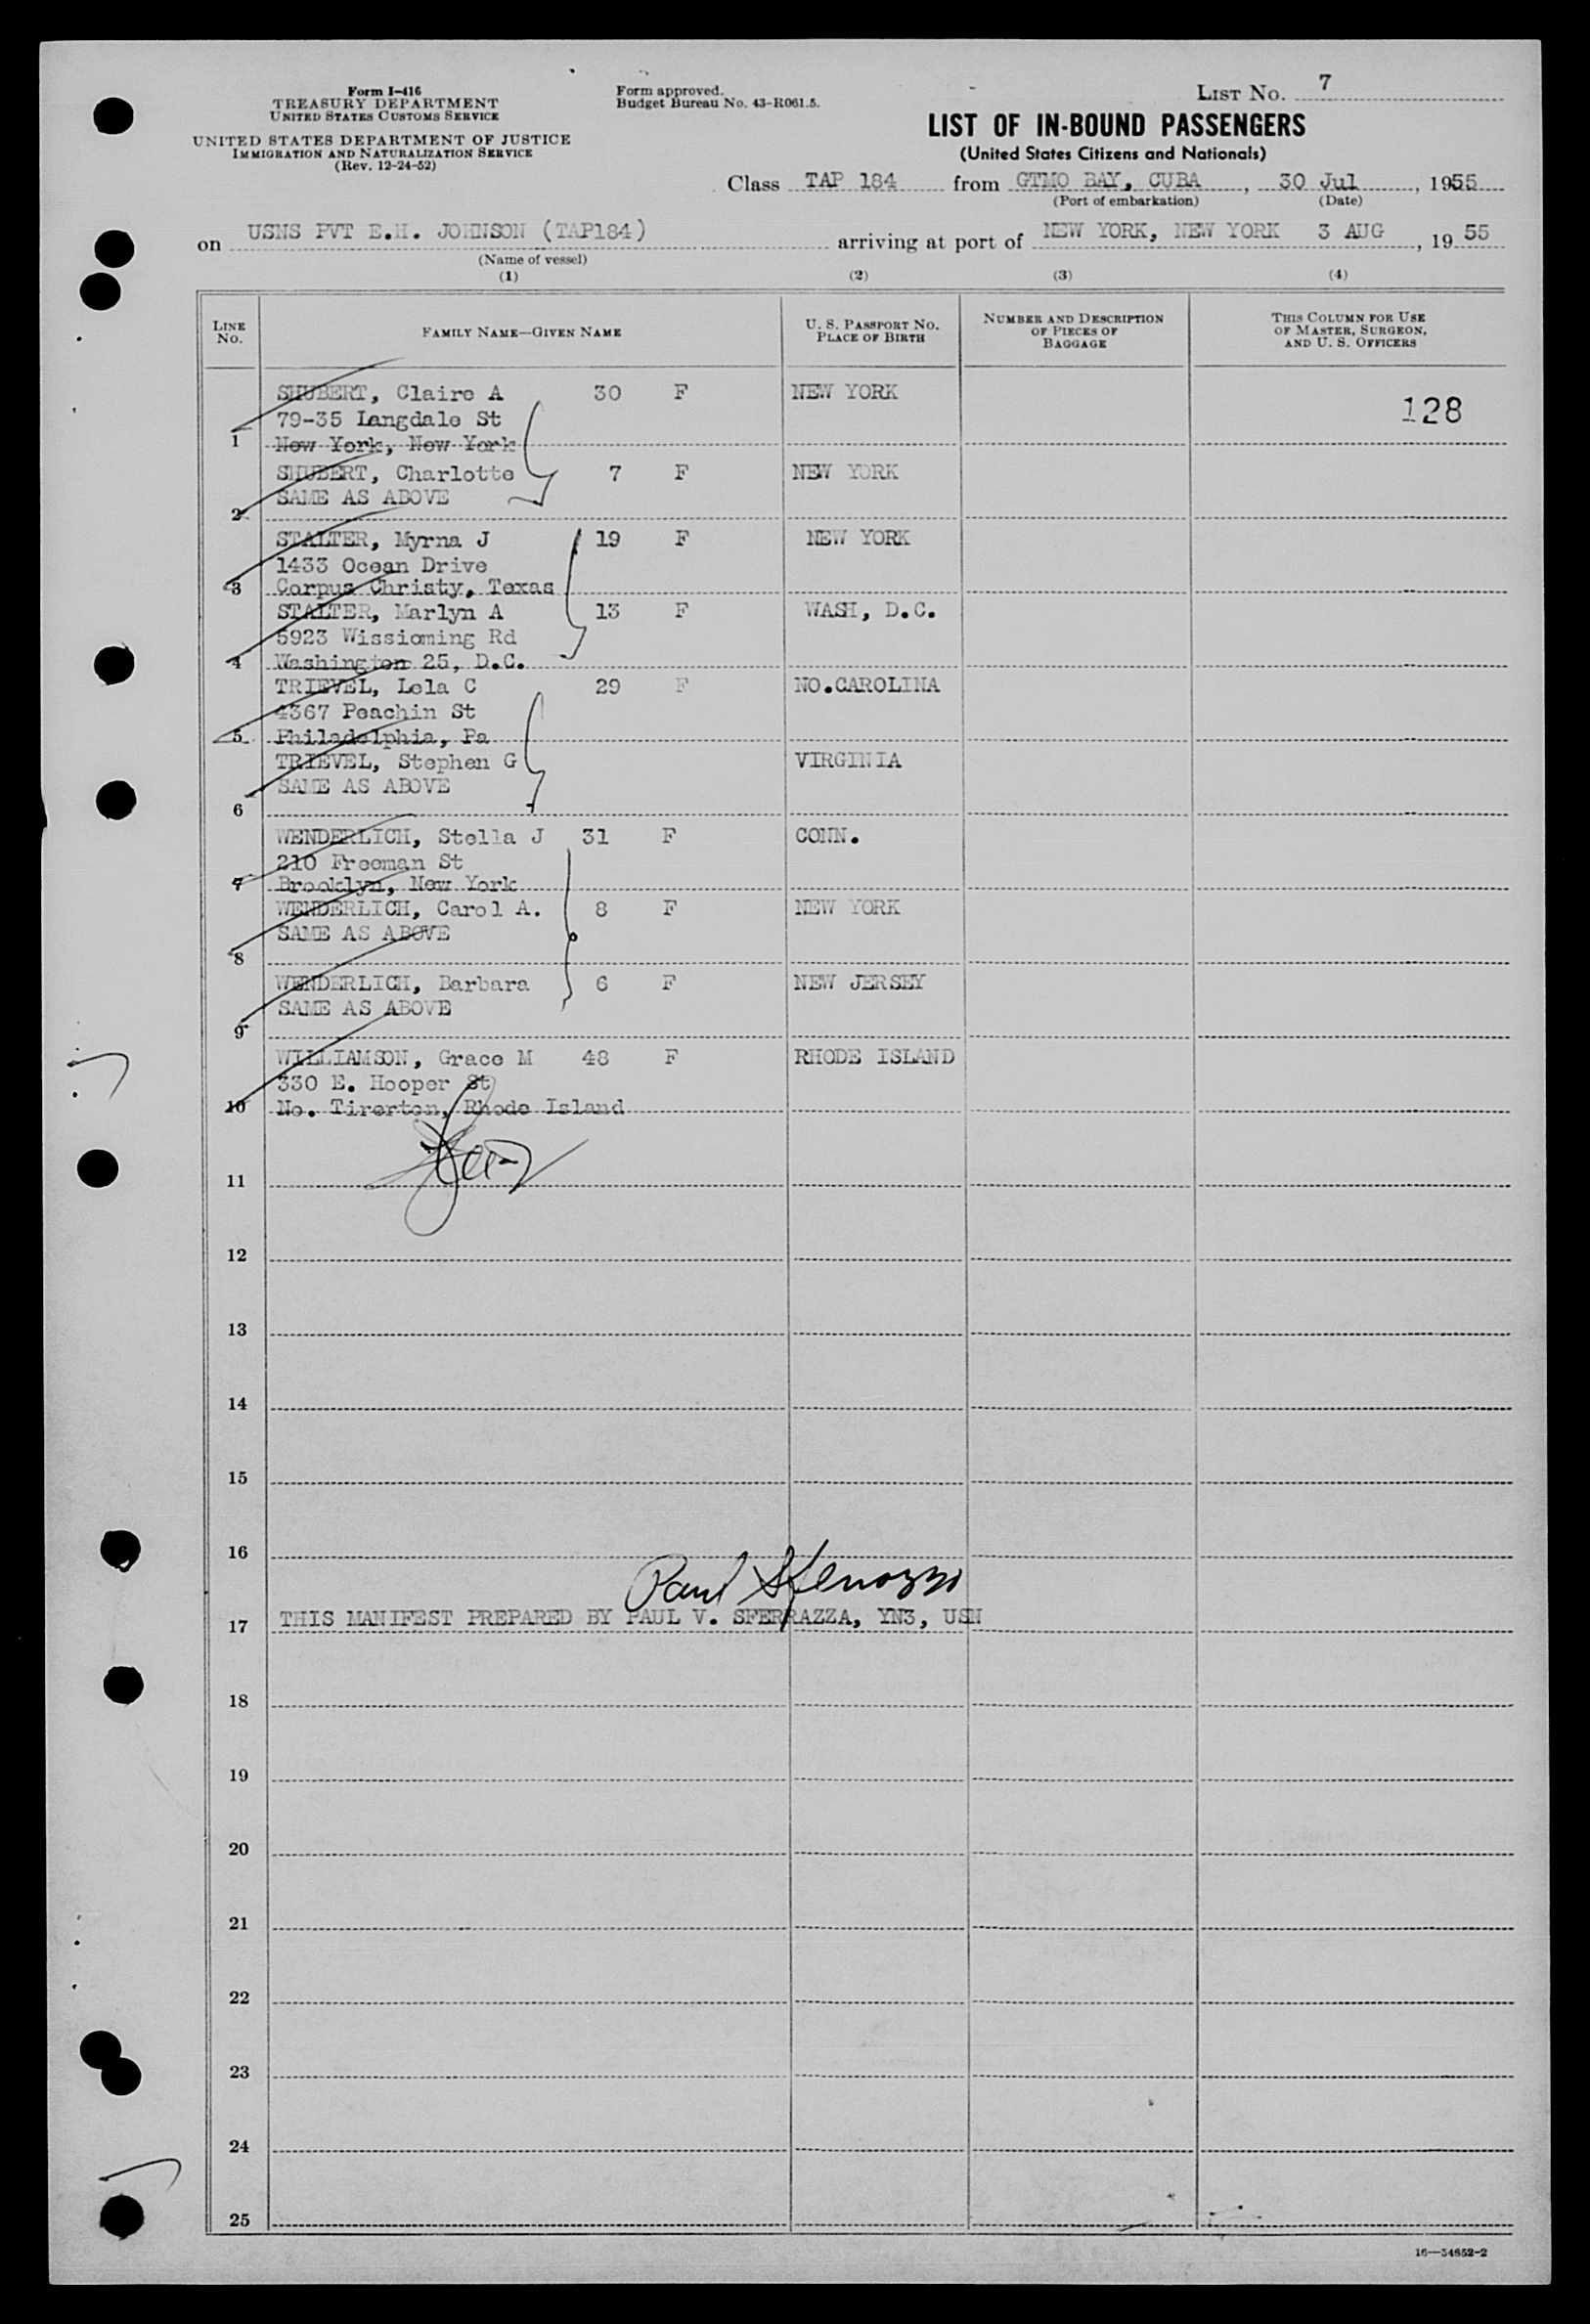 Form I-416
TREASURY DEPARTMENT
UNITED STATES CUSTOMS SERVICE
UNITED STATES DEPARTMENT OF JUSTICE
IMMIGRATION AND NATURALIZATION SERVICE
(Rev. 12-24-52)
Form approved.
Budget Bureau No. 43-R061.5.
LIST NO. 7
LIST OF IN-BOUND PASSENGERS
(United States Citizens and Nationals)
Class TAP 184 from GTMO BAY, CUBA, 30 Jul, 1955
(Port of embarkation) (Date)
on USNS PVT E.H. JOHNSON (TAP184) arriving at port of NEW YORK, NEW YORK 3 AUG, 19 55
(Name of vessel)
(1) (2) (3) (4)
LINE NO. FAMILY NAME—GIVEN NAME U. S. PASSPORT NO. PLACE OF BIRTH NUMBER AND DESCRIPTION OF PIECES OF BAGGAGE THIS COLUMN FOR USE OF MASTER, SURGEON, AND U. S. OFFICERS
SHUBERT, Claire A 30 F NEW YORK 128
79-35 Langdale St
1 New York, New York
SHUBERT, Charlotte 7 F NEW YORK
SAME AS ABOVE
2
STALTER, Myrna J 19 F NEW YORK
1433 Ocean Drive
3 Corpus Christy, Texas
STALTER, Marlyn A 13 F WASH, D.C.
5923 Wissioming Rd
4 Washington 25, D.C.
TRIEVEL, Lola C 29 F NO.CAROLINA
4367 Peachin St
5 Philadelphia, Pa
TRIEVEL, Stephen G VIRGINIA
SAME AS ABOVE
6
WENDERLICH, Stella J 31 F CONN.
210 Freeman St
7 Brooklyn, New York
WENDERLICH, Carol A. 8 F NEW YORK
SAME AS ABOVE
8
WENDERLICH, Barbara 6 F NEW JERSEY
SAME AS ABOVE
9
WILLIAMSON, Grace M 48 F RHODE ISLAND
330 E. Hooper St
10 No. Tirerton, Rhode Island
11
12
13
14
15
16
Paul Sferrazza
17 THIS MANIFEST PREPARED BY PAUL V. SFERRAZZA, YN3, USN
18
19
20
21
22
23
24
25
16—54852-2